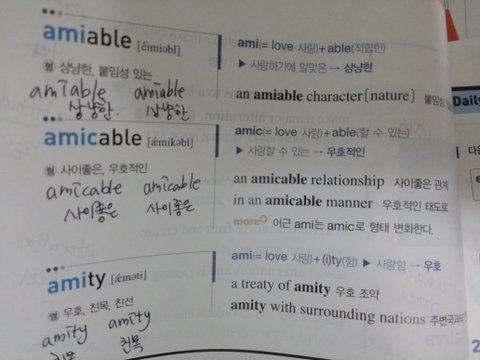 amiable [éimiəbl]
형 상냥한, 붙임성 있는
amiable amiable
상냥한 상냥한
ami(= love 사랑)+able(적합한)
▶ 사랑하기에 알맞은 → 상냥한
an amiable character[nature] 붙임성
amicable [ǽmikəbl]
형 사이좋은, 우호적인
amicable amicable
사이좋은 사이좋은
amic(= love 사랑)+able(할 수 있는)
▶ 사랑할 수 있는 → 우호적인
an amicable relationship 사이좋은 관계
in an amicable manner 우호적인 태도로
more 어근 ami는 amic로 형태 변화한다.
amity [ǽməti]
명 우호, 친목, 친선
amity amity
친목 친목
ami(= love 사랑)+(i)ty(함) ▶ 사랑함 → 우호
a treaty of amity 우호 조약
amity with surrounding nations 주변국과의
Daily
다음
2